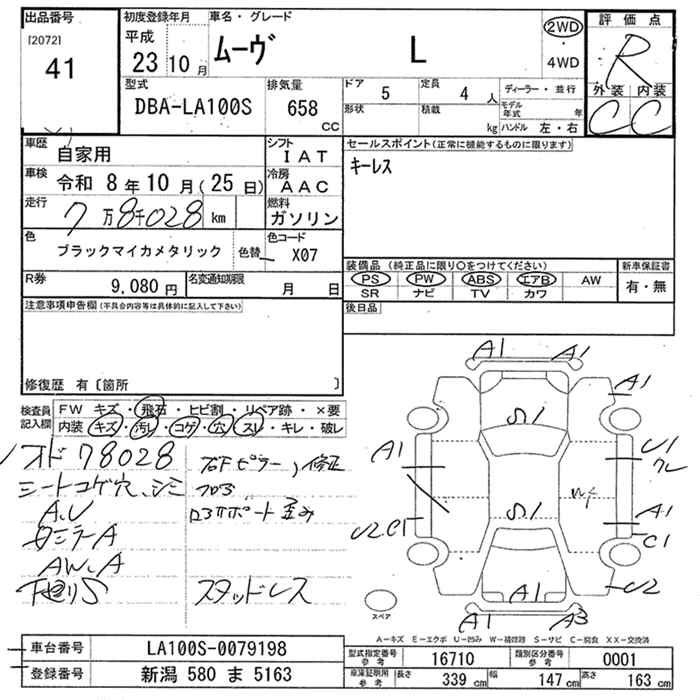 出品番号
[2072]
41
初度登録年月
平成
23 10 月
車名・グレード
ムーヴ L
2WD
4WD
評価点
R
外装 内装
C C
型式
DBA-LA100S
排気量
658 CC
ドア 5
定員 4 人
形状
積載 kg
ディーラー・並行
モデル年式 年
ハンドル 左・右
車歴 自家用
シフト IAT
車検 令和 8年 10月(25日)
冷房 AAC
走行 7万8千028 km
燃料 ガソリン
色 ブラックマイカメタリック 色替
色コード X07
R券 9,080 円
名変通知期限 月 日
セールスポイント(正常に機能するものに限ります)
キーレス
装備品 (純正品に限り○をつけてください)
PS PW ABS エアB AW
SR ナビ TV カワ
新車保証書
有・無
後日品
注意事項申告欄(不具合内容等は具体的に記入して下さい)
修復歴 有〔箇所 〕
検査員記入欄
FW キズ・飛石・ヒビ割・リペア跡・×要
内装 キズ・汚レ・コゲ・穴・スレ・キレ・破レ
オド 78028
シートコゲ穴、シミ
A,U
AW、A
下廻りS
右Fピラー、修正
スタッドレス
A1 A1
A1
S1
A1
U1
クレ
S1
A1
C1
U2
U2C1
A1
A1 A3
スペア
A-キズ E-エクボ U-凹み W-補修跡 S-サビ C-腐食 XX-交換済
車台番号 LA100S-0079198
登録番号 新潟 580 ま 5163
型式指定番号 参考 16710
類別区分番号 参考 0001
車庫証明用 参考 長さ 339 cm 幅 147 cm 高さ 163 cm